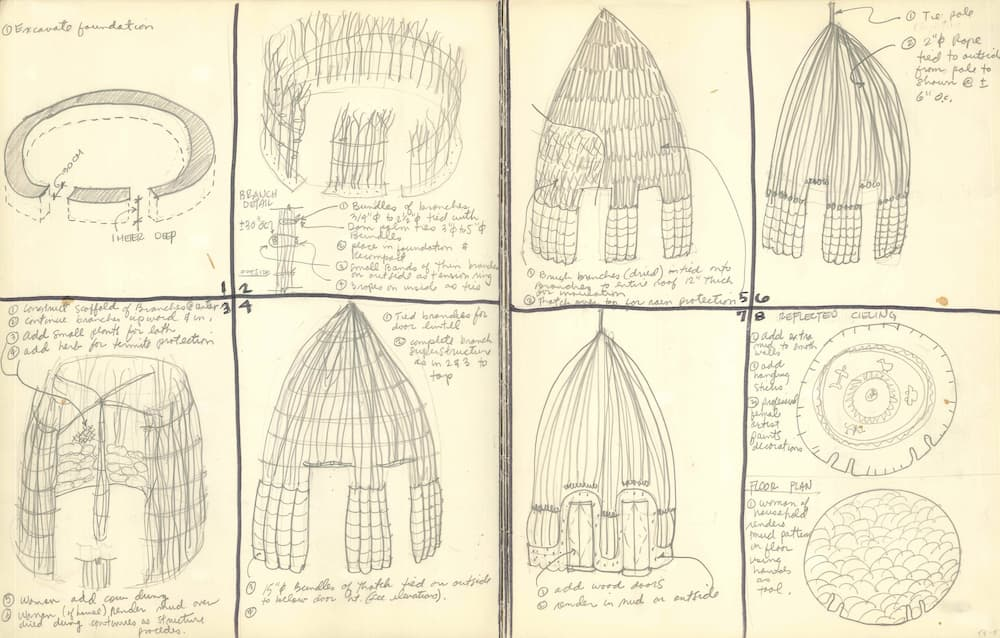 ① Excavate foundation
60 CM
1 METER DEEP
1
BRANCH
DETAIL
① Bundles of branches
3/4"ϕ to 2½"ϕ tied with
Dom palm ties 3"ϕ to 5"ϕ
Bundles
② place in foundation &
Recompact
③ Small Bands of thin branches
on outside as tension ring
④ 2 ropes on inside as ties
2
① Construct scaffold of Branches @ center
② continue branches upward & in;
③ add small plants for lath
④ add herb for termite protection
3
⑤ Women add cow dung
⑥ Women (of house) Render mud over
dried dung continues as structure
procedes.
4
① Tied branches for
door lintill
② complete branch
superstructure
as in 2 & 3 to
top
③ 15"ϕ Bundles of thatch tied on outside
to below door ht. (see elevation).
④
① Brush branches (dried) tied onto
Branches to entire roof 12" thick
for insulation
② Thatch over top for rain protection
5
6
① Tie, pole
② 2"ϕ Rope
tied to outside
from pole to
Shown @ ±
6" O.C.
7
① add wood doors
② render in mud on outside
8
REFLECTED CIELING
① add extra
mud to smooth
walls
② add
hanging
sticks
③ professional
female
artist
paints
decorations
FLOOR PLAN
① woman of
household
renders
mud pattern
on floor
using
hands
as
tool.